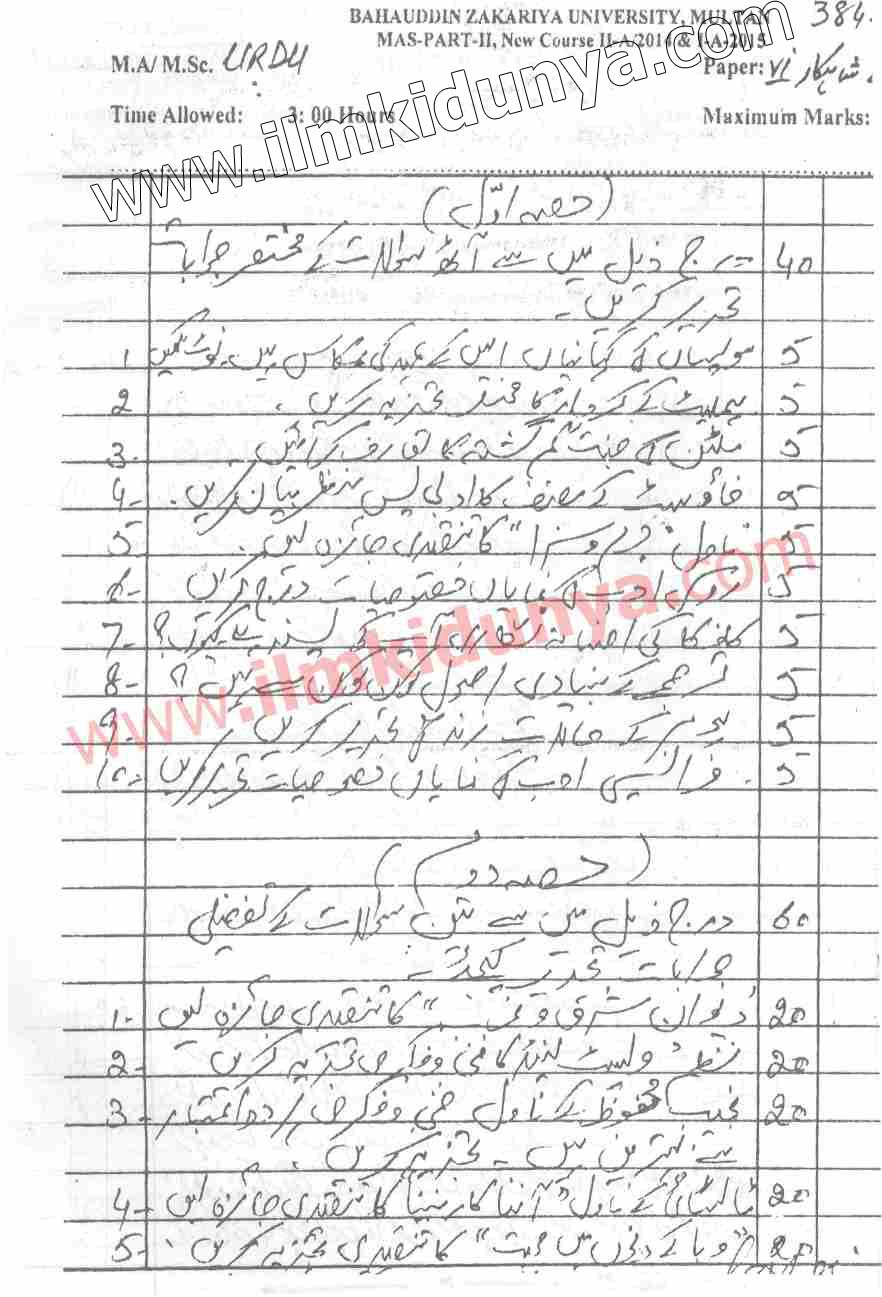 BAHAUDDIN ZAKARIYA UNIVERSITY, MULTAN 384.
MAS-PART-II, New Course II-A/2014 & I-A-2015
M.A/ M.Sc. URDU Paper: VI شاہکار
Time Allowed: 3: 00 Hours Maximum Marks:
www.ilmkidunya.com
(حصہ اوّل)
درج ذیل میں سے آٹھ سوالات کے مختصر جوابات 40
تحریر کریں۔
1 موپساں کی کہانیاں اس کے عہد کی عکاس ہیں۔ نوٹ لکھیں 5
2 ہملیٹ کے کردار کا مختصر تجزیہ کریں۔ 5
3- ملٹن کی جنت گم گشتہ کا تعارف کرائیں۔ 5
4- فاؤسٹ کے مصنف کا ادبی پس منظر بیان کریں۔ 5
5- ناول "جرم و سزا" کا تنقیدی جائزہ لیں۔ 5
6- ادب کی نمایاں خصوصیات درج کریں 5
7- کافکا کی افسانہ نگاری آپ کو پسند ہے کیوں؟ 5
8- ترجمے کے بنیادی اصول کون کون سے ہیں؟ 5
9- کے حالات زندگی تحریر کریں 5
10- فرانسیسی ادب کی نمایاں خصوصیات تحریر کریں 5
www.ilmkidunya.com
(حصہ دوم)
درج ذیل میں سے تین سوالات کے تفصیلی 60
جوابات تحریر کیجئے۔
1- "دیوان شرق و غرب" کا تنقیدی جائزہ لیں 20
2- نظم "ویسٹ لینڈ" کا فنی و فکری تجزیہ کریں 20
3- نجیب محفوظ کے ناول فنی و فکری ہر دو اعتبار 20
سے بہترین ہیں۔ تجزیہ کریں۔
4- ٹالسٹائی کے ناول "آنا کارنینا" کا تنقیدی جائزہ لیں 20
5- "وبا کے دنوں میں محبت" کا تنقیدی تجزیہ کریں۔ 20